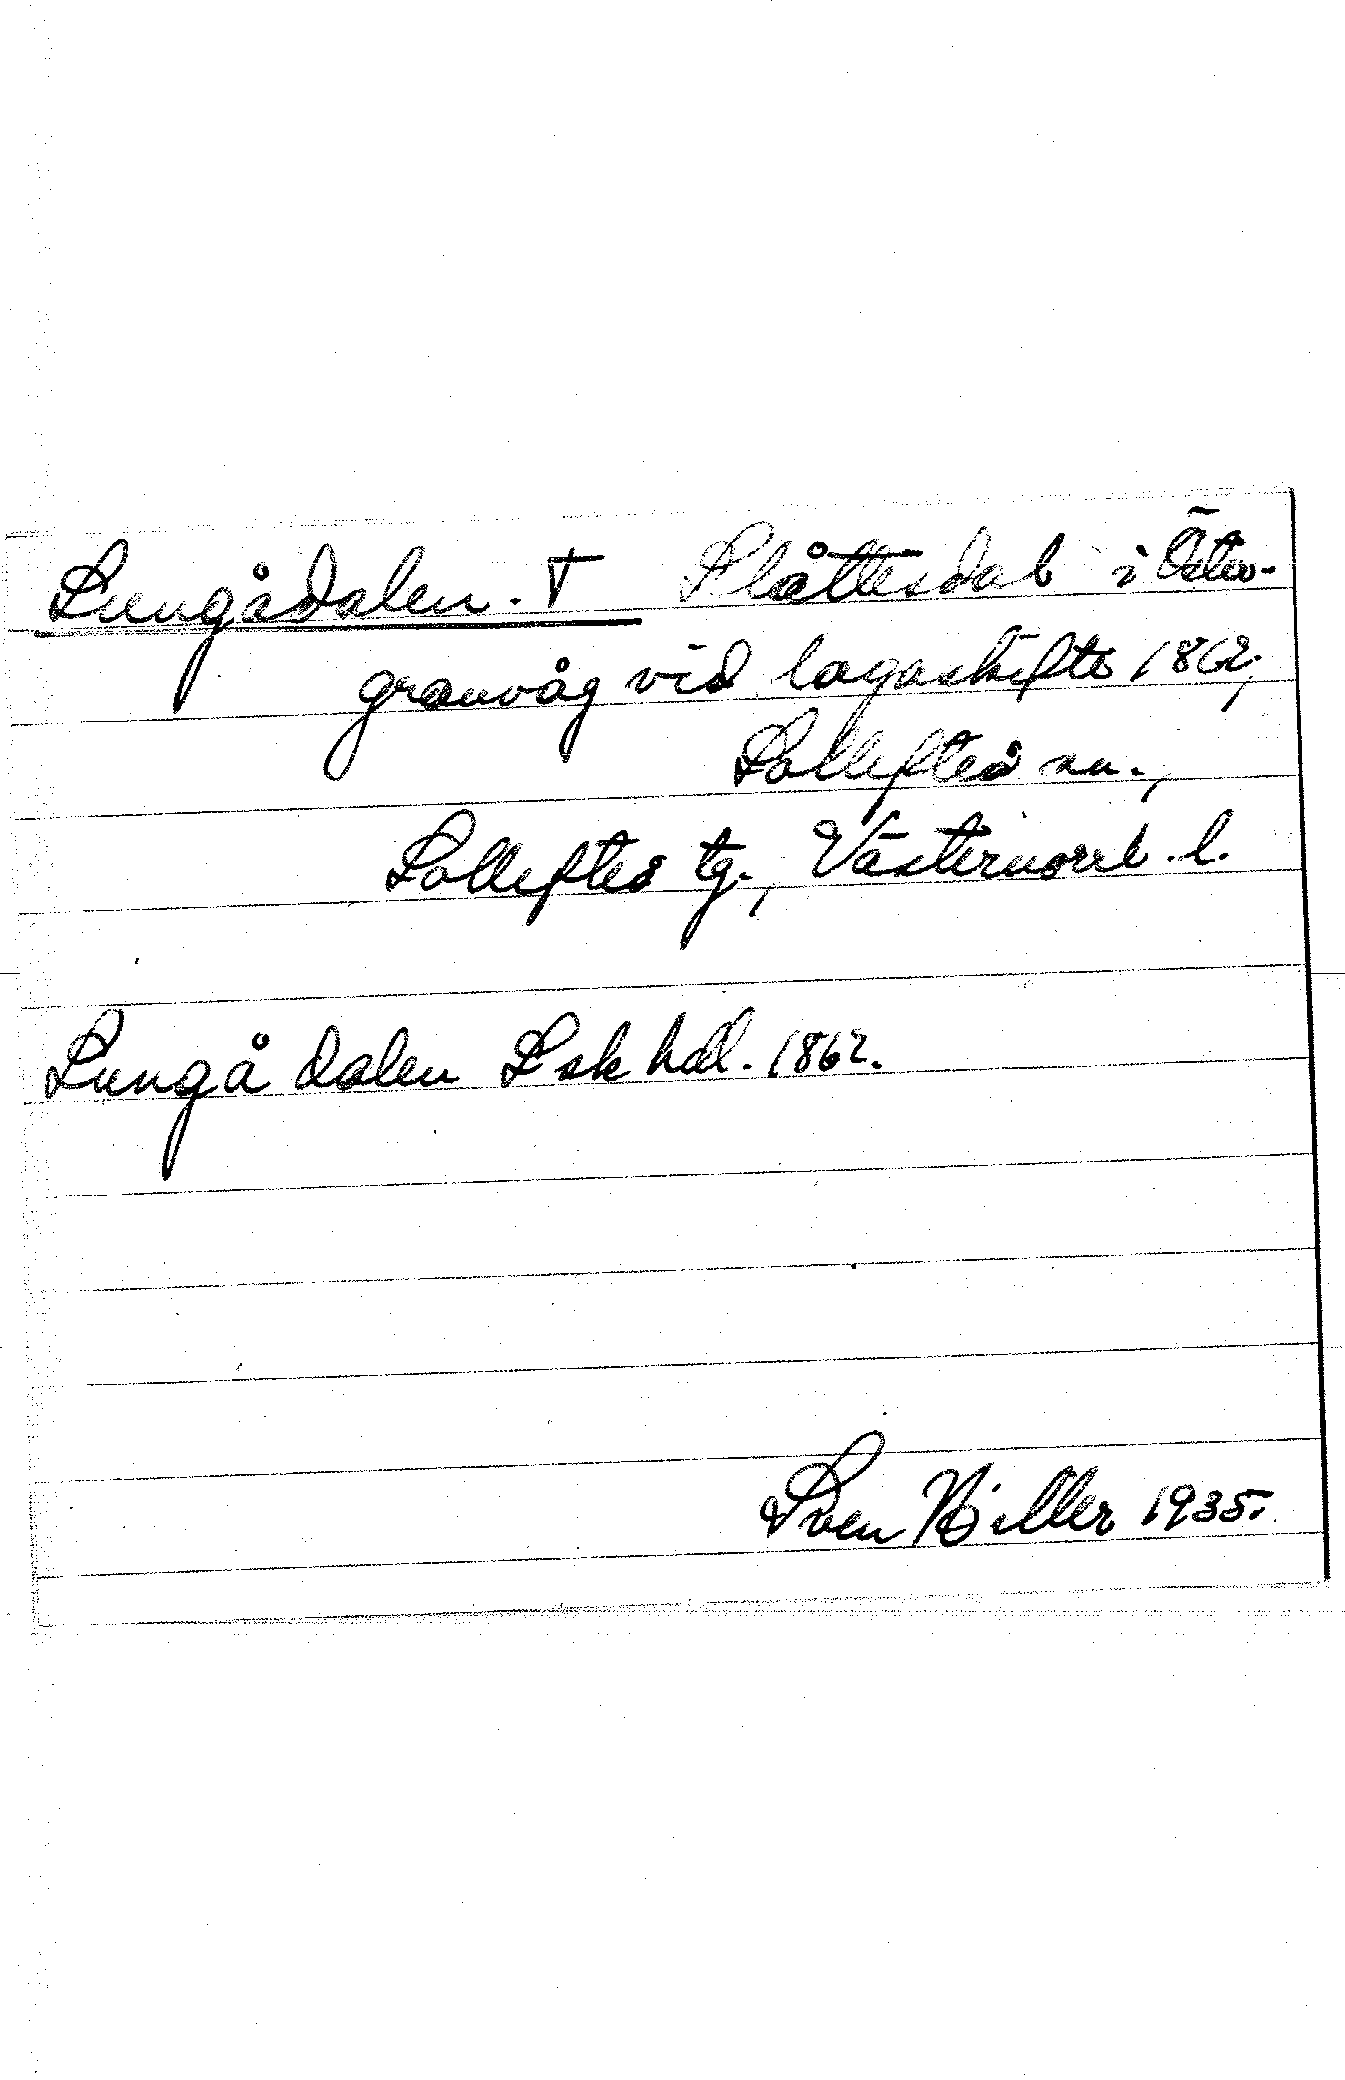 Lungådalen. † Slåttesdal i Öster-
granvåg vid lagaskifte 1862,
Sollefteå sn.,
Sollefteå tg., Västernorrl. l.
Lungå dalen Lsk hdl. 1862.
Sven 1935.